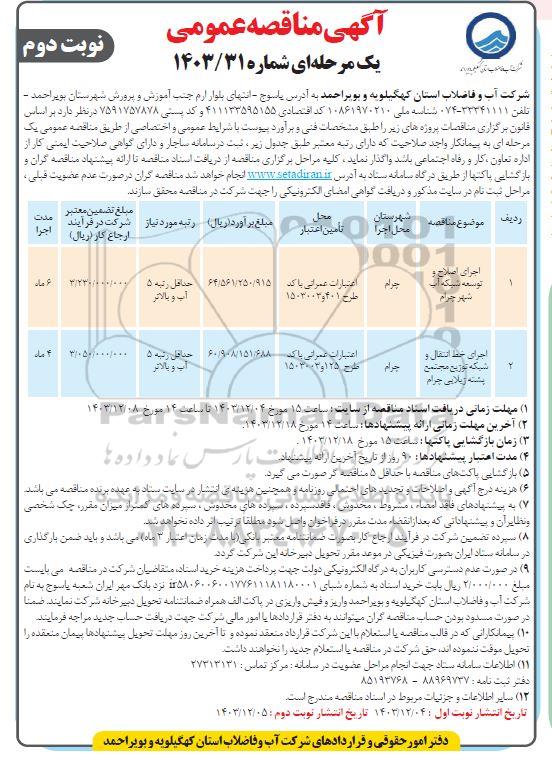 آگهی مناقصه عمومی
نوبت دوم
یک مرحله‌ای شماره ۱۴۰۳/۳۱
شرکت آب و فاضلاب استان کهگیلویه و بویراحمد
شرکت آب و فاضلاب استان کهگیلویه و بویراحمد به آدرس یاسوج -انتهای بلوار ارم جنب آموزش و پرورش شهرستان بویراحمد -
تلفن ۳۳۳۴۱۱۱۱-۰۷۴ شناسه ملی ۱۰۸۶۱۹۷۰۲۱۰ کد اقتصادی ۴۱۱۱۳۳۵۹۵۱۵۵ و کد پستی ۷۵۹۱۷۵۷۸۷۸ درنظر دارد بر اساس
قانون برگزاری مناقصات پروژه های زیر را طبق مشخصات فنی و برآورد پیوست با شرایط عمومی و اختصاصی از طریق مناقصه عمومی یک
مرحله ای به پیمانکار واجد صلاحیت که دارای رتبه معتبر طبق جدول زیر ، ثبت درسامانه ساجار و دارای گواهی صلاحیت ایمنی کار از
اداره تعاون ،کار و رفاه اجتماعی باشد واگذار نماید ، کلیه مراحل برگزاری مناقصه از دریافت اسناد مناقصه تا ارائه پیشنهاد مناقصه گران و
بازگشایی پاکتها از طریق درگاه سامانه ستاد به آدرس www.setadiran.ir انجام خواهد شد مناقصه گران درصورت عدم عضویت قبلی ،
مراحل ثبت نام در سایت مذکور و دریافت گواهی امضای الکترونیکی را جهت شرکت در مناقصه محقق سازند.
ردیف | موضوع مناقصه | شهرستان محل اجرا | محل تأمین اعتبار | مبلغ برآورد(ریال) | رتبه مورد نیاز | مبلغ تضمین معتبر شرکت در فرآیند ارجاع کار (ریال) | مدت اجرا
۱ | اجرای اصلاح و توسعه شبکه آب شهر چرام | چرام | اعتبارات عمرانی با کد طرح ۴۰۱و۱۵۰۳۰۰۳ | ۶۴/۵۶۱/۲۵۰/۹۱۵ | حداقل رتبه ۵ آب و بالاتر | ۳/۲۳۰/۰۰۰/۰۰۰ | ۶ ماه
۲ | اجرای خط انتقال و شبکه توزیع مجتمع پشته زیلایی چرام | چرام | اعتبارات عمرانی با کد طرح ۱۲۵و۱۵۰۳۰۰۳ | ۶۰/۹۰۸/۱۵۱/۶۸۸ | حداقل رتبه ۵ آب و بالاتر | ۳/۰۵۰/۰۰۰/۰۰۰ | ۴ ماه
۱) مهلت زمانی دریافت اسناد مناقصه از سایت : ساعت ۱۵ مورخ ۱۴۰۳/۱۲/۰۴ تا ساعت ۱۴ مورخ ۱۴۰۳/۱۲/۰۸
۲) آخرین مهلت زمانی ارائه پیشنهادها : ساعت ۱۴ مورخ ۱۴۰۳/۱۲/۱۸.
۳) زمان بازگشایی پاکتها : ساعت ۱۵ مورخ ۱۴۰۳/۱۲/۱۸ .
۴) مدت اعتبار پیشنهادها : ۹۰ روز از تاریخ آخرین ارائه پیشنهاد.
۵) بازگشایی پاکت‌های مناقصه با حداقل ۵ مناقصه گر صورت می گیرد.
۶) هزینه درج آگهی و اصلاحات و تجدید های احتمالی روزنامه و همچنین هزینه ی انتشار در سایت ستاد به عهده برنده مناقصه می باشد.
۷) به پیشنهادهای فاقد امضاء ، مشروط ، مخدوش ، فاقدسپرده ، سپرده های مخدوش ، سپرده های کمتر از میزان مقرر، چک شخصی
ونظایر آن و پیشنهاداتی که بعدازانقضاء مدت مقرر در فراخوان واصل شود مطلقا ترتیب اثر داده نخواهد شد.
۸) سپرده تضمین شرکت در فرآیند ارجاع کار بصورت ضمانتنامه معتبر بانکی (با مدت زمان اعتبار ۳ ماه) می باشد و باید ضمن بارگذاری
در سامانه ستاد ایران بصورت فیزیکی در موعد مقرر تحویل دبیرخانه این شرکت گردد.
۹) در صورت عدم دسترسی کاربران به درگاه الکترونیکی دولت جهت پرداخت هزینه خرید اسناد، متقاضیان شرکت در مناقصه می بایست
مبلغ ۲/۰۰۰/۰۰۰ ریال بابت خرید اسناد به شماره شبای نزد بانک مهر ایران شعبه یاسوج به نام
شرکت آب و فاضلاب استان کهگیلویه و بویراحمد واریز و فیش واریزی در پاکت الف همراه ضمانتنامه تحویل دبیرخانه شرکت نمایند. ضمنا
در صورت مسدود بودن حساب مناقصه گران میتوانند به دفتر قراردادها یا امور مالی شرکت جهت دریافت حساب جدید مراجعه فرمایند.
۱۰) پیمانکارانی که در قالب مناقصه یا استعلام با این شرکت قرارداد منعقد نموده و تا آخرین روز مهلت تحویل پیشنهادها پیمان منعقده را
تحویل موقت ننموده اند، حق شرکت در مناقصه یا استعلام جدید را نخواهند داشت.
۱۱) اطلاعات سامانه ستاد جهت انجام مراحل عضویت در سامانه : مرکز تماس : ۲۷۳۱۳۱۳۱
دفتر ثبت نامه : ۸۸۹۶۹۷۳۷ - ۸۵۱۹۳۷۶۸
۱۲) سایر اطلاعات و جزئیات مربوط در اسناد مناقصه مندرج است.
تاریخ انتشار نوبت اول : ۱۴۰۳/۱۲/۰۴ تاریخ انتشار نوبت دوم : ۱۴۰۳/۱۲/۰۵
دفتر امور حقوقی و قراردادهای شرکت آب و فاضلاب استان کهگیلویه و بویراحمد